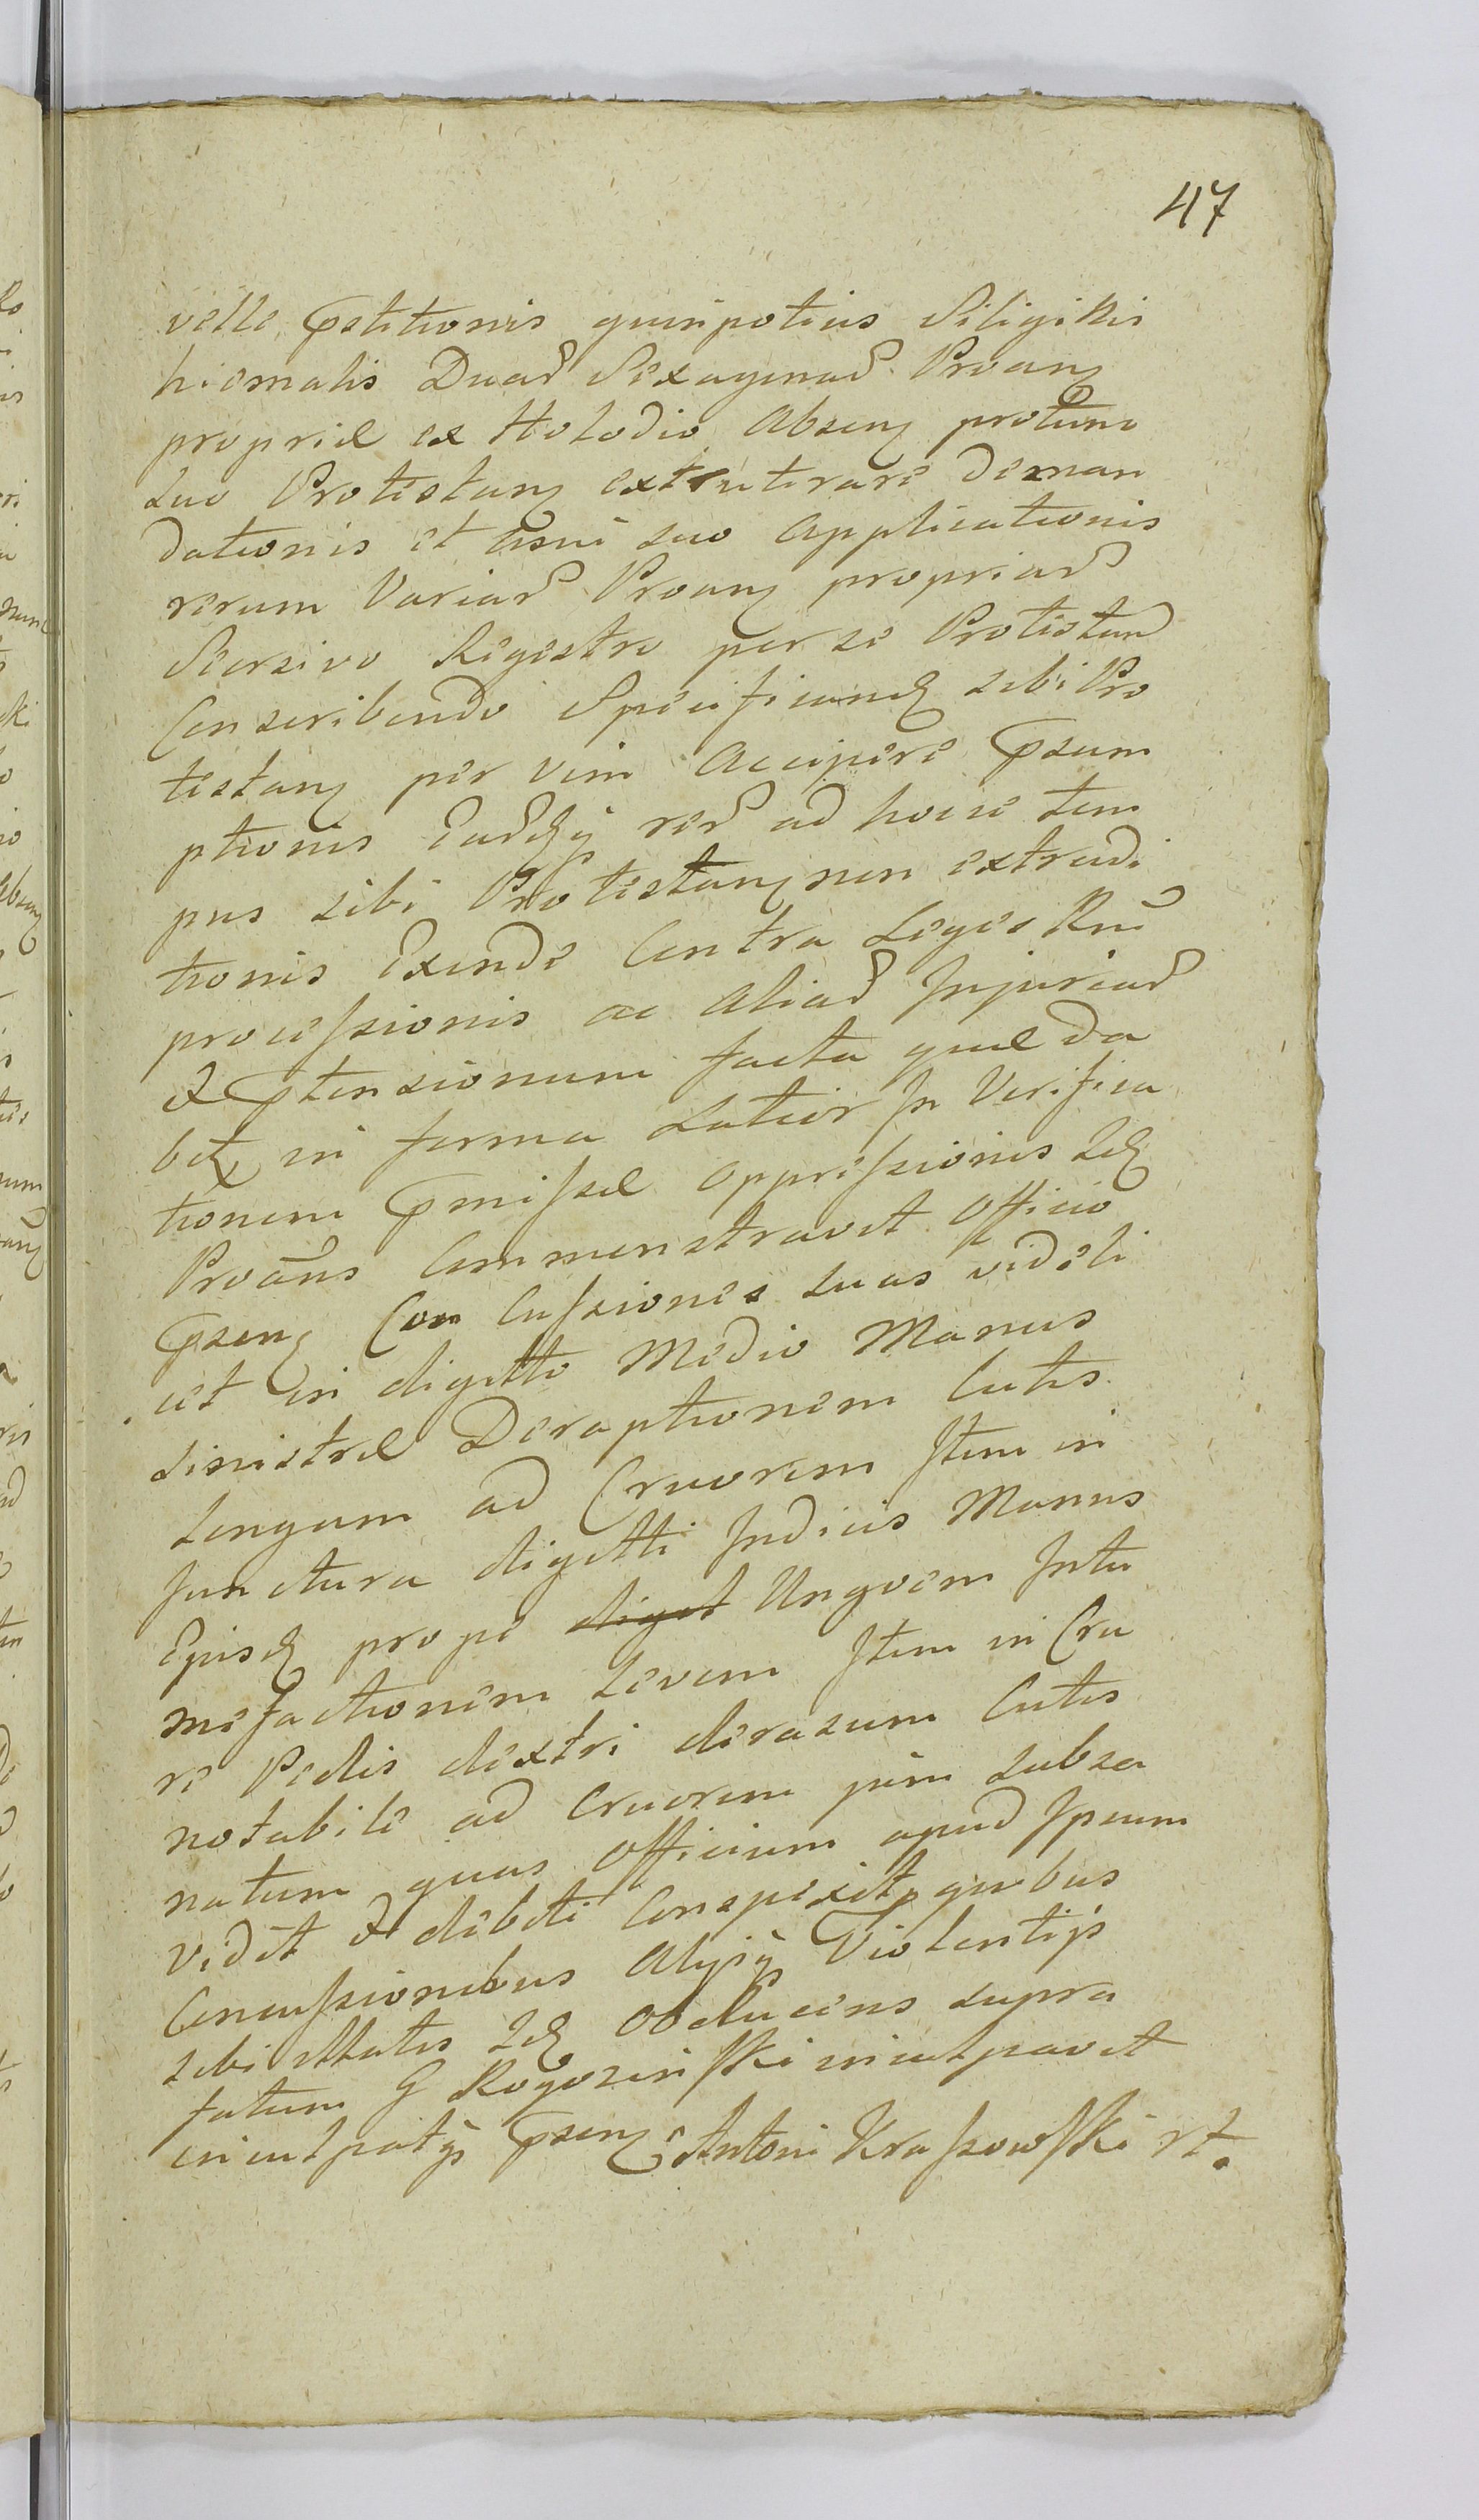 47
velle Petitionis quinpotius Siliginis
hiemalis Duar Sexagenar Proan
propriæ ex Horodio Absen protunc
suo Protestan extriturare deman
dationis et Usui suo applicationis
rerum Variar Proan propriar
Seorsivo Regestro per se Protestan
Conscribendo Specificand sibi Pro
testan per vim Accipere Præsum
ptionis eardq rer ad hocce tem
pus sibi Protestan non extradi
tionis Exinde Contra Leges Rni
processionis ac Aliar Injuriar
& Prætensionum facta quæ da
bit in forma Latior In Verifica
tionem Præmissæ oppressionis Id
Proans Commonstravit Officio
Præsen Concussiones suas videli
cet in digitto Medio Manus
sinistræ Deraptionem Cutis
Longam ad Cruorem Item in
Junctura digitti Indicis Manus
Ejusd prope diget Ungvem Intu
mefactionem Levem Item in Cru
re Pedis dextri derasum Cutis
notabile ad Cruorem jam subsa
natum quas Officium apud Ipsum
vidit & debite Conspexit, quibus
Concussionibus Alysq Violentijs
sibi illatis Id obducens supra
fatum G Rogozinski inculpavit
inculpatq Præsen Antoni Kraszowski rt.